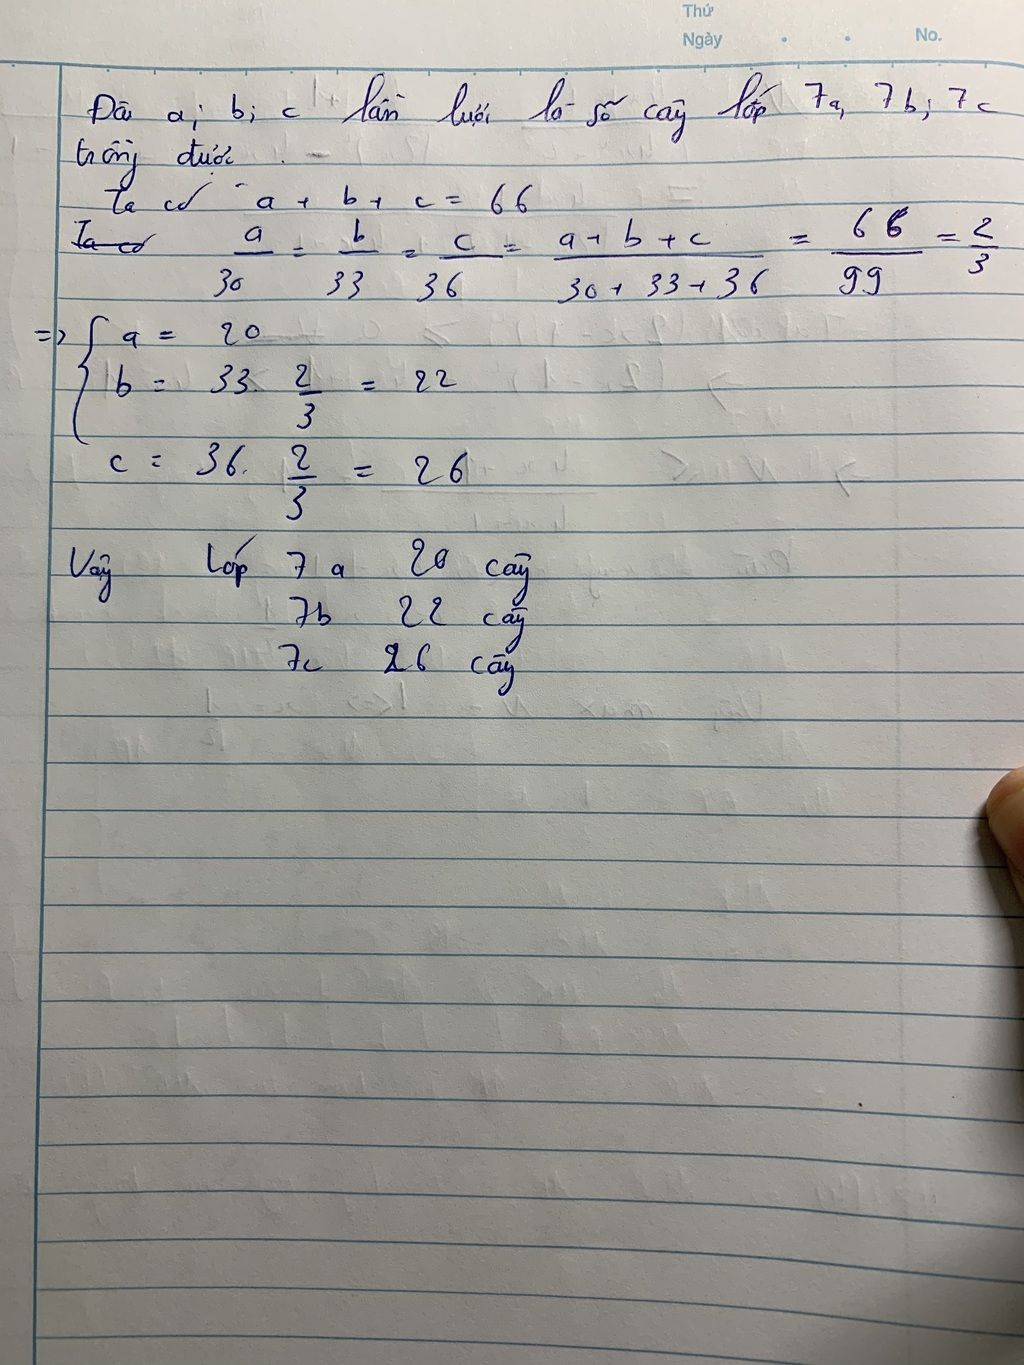 Thứ
Ngày . . No.
Đặt a; b; c lần lượt là số cây lớp 7a, 7b; 7c
trồng được.
Ta có a + b + c = 66
Ta có a/30 = b/33 = c/36 = (a + b + c)/(30 + 33 + 36) = 66/99 = 2/3
=> { a = 20
b = 33. 2/3 = 22
c = 36. 2/3 = 26
Vậy Lớp 7a 20 cây
7b 22 cây
7c 26 cây